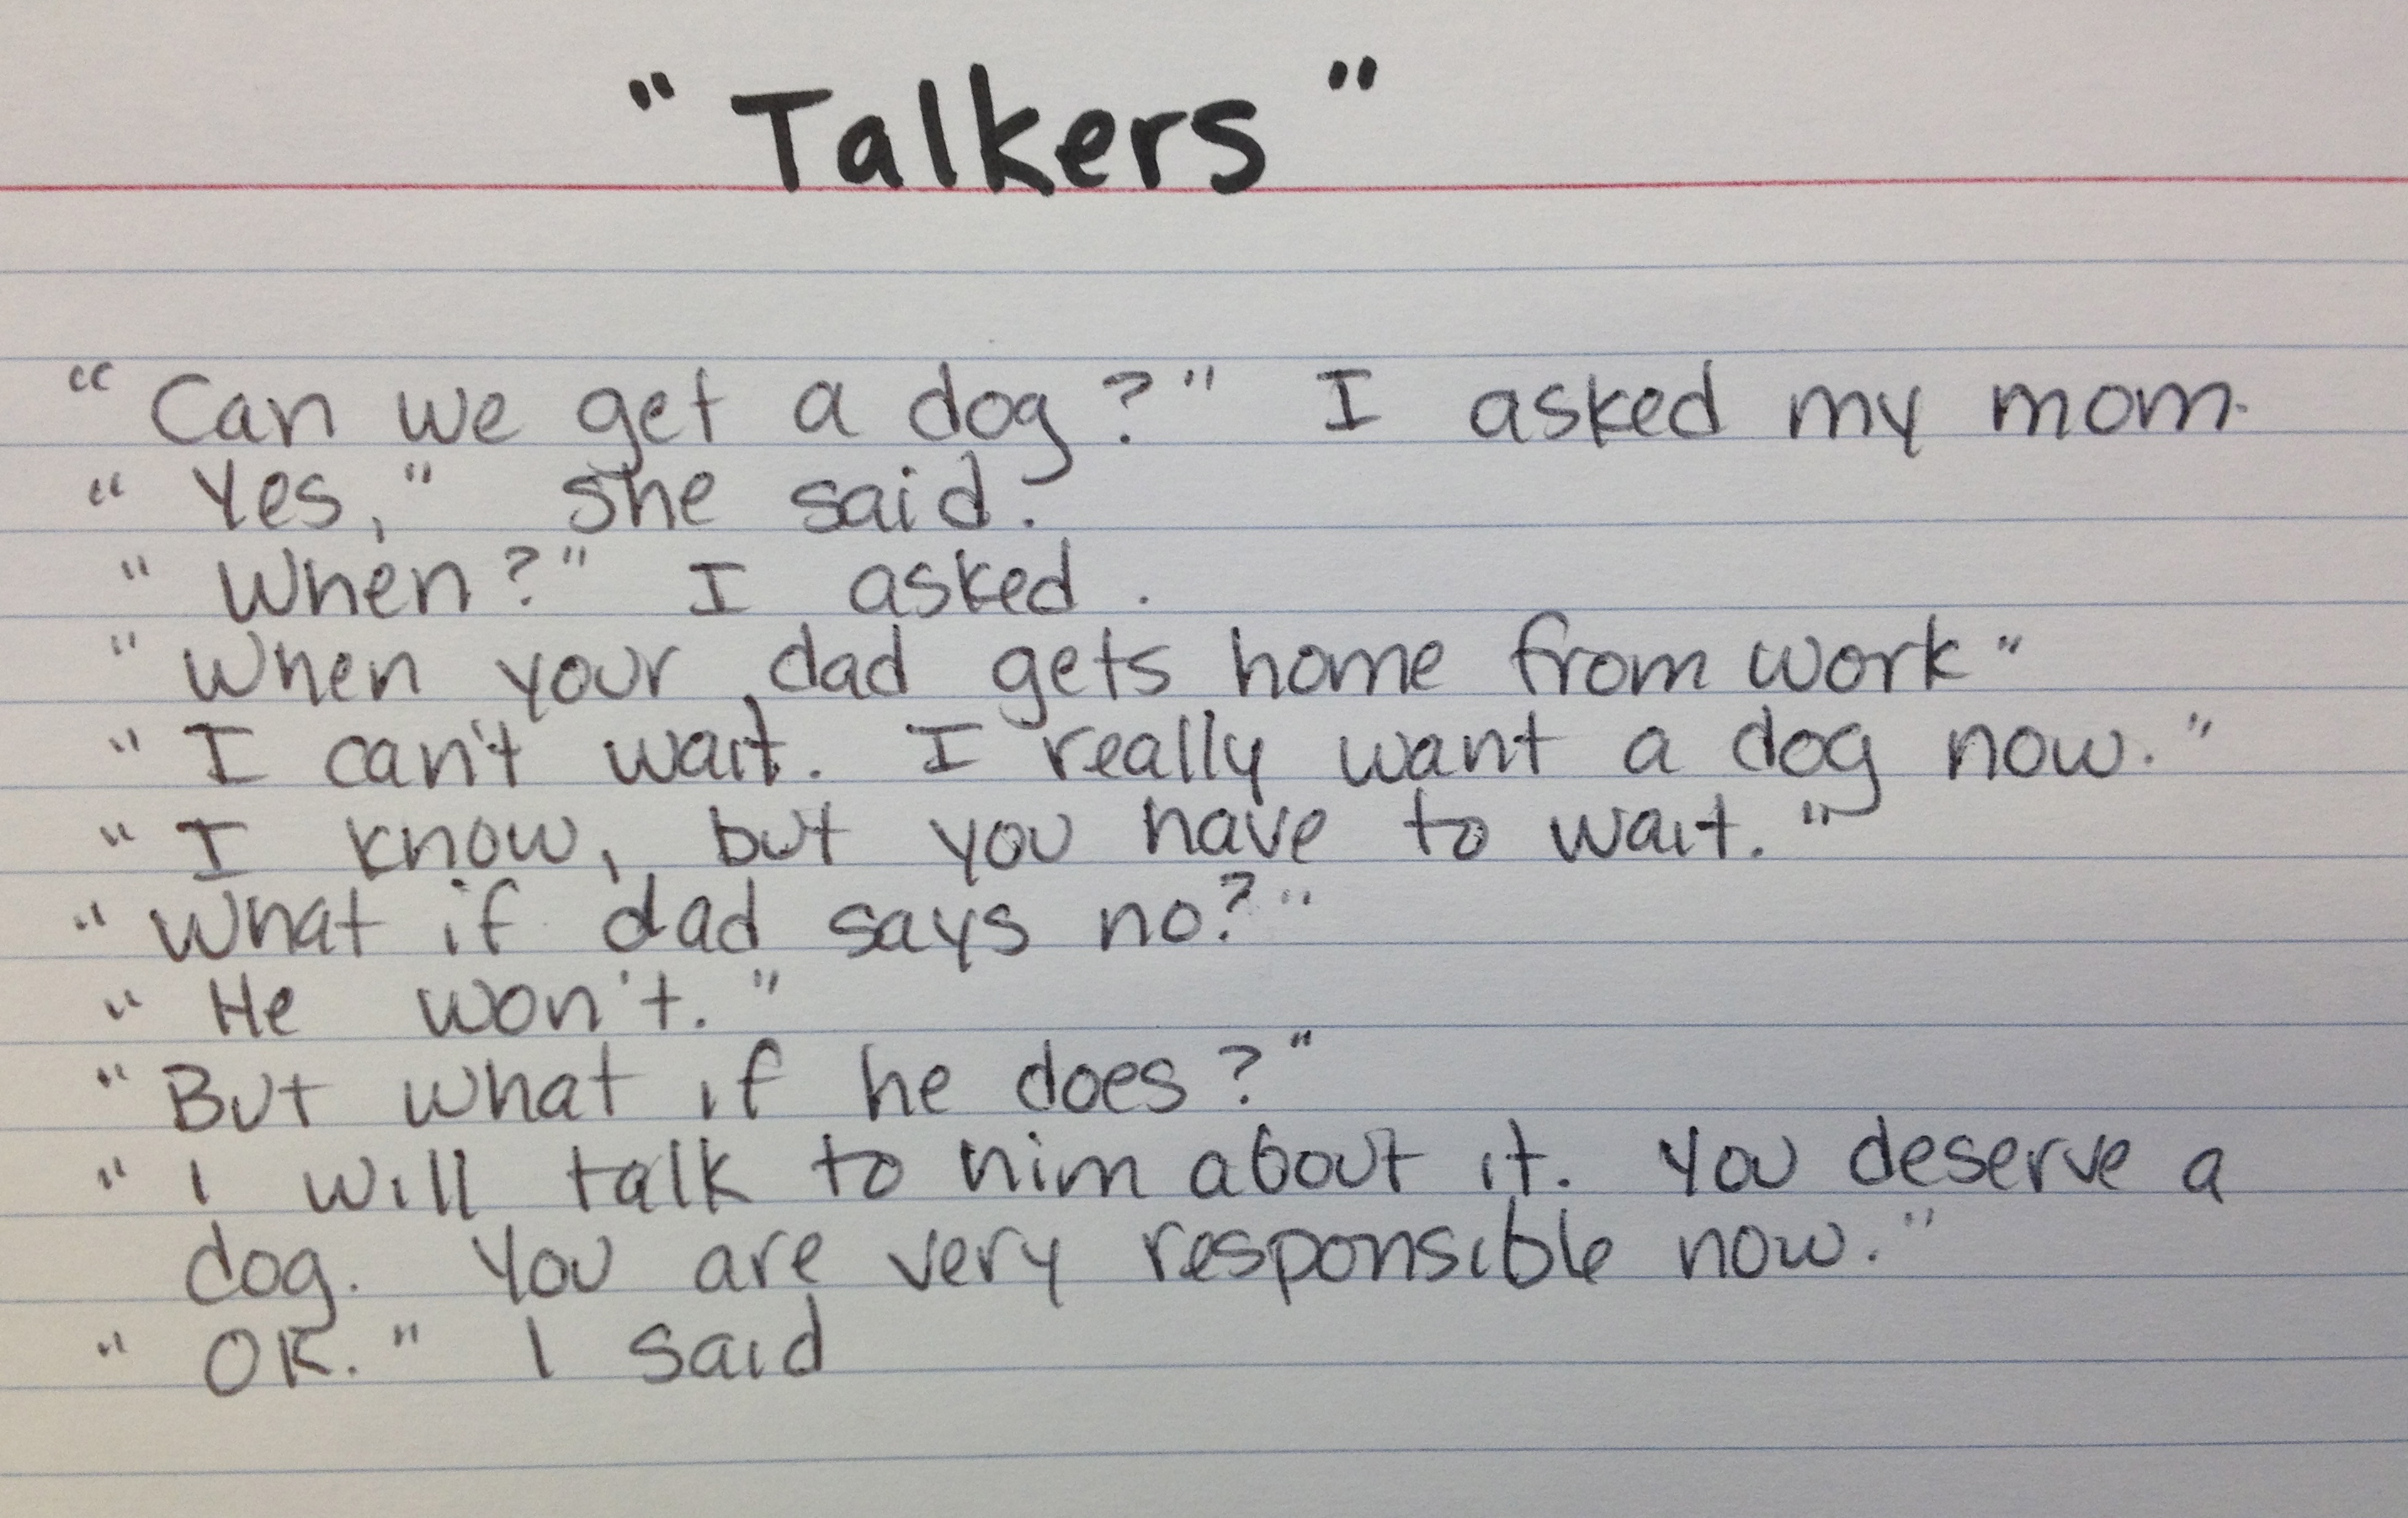 "Talkers"
"Can we get a dog?" I asked my mom.
"Yes," she said.
"When?" I asked.
"When your dad gets home from work"
"I can't wait. I really want a dog now."
"I know, but you have to wait."
"What if dad says no?"
"He won't."
"But what if he does?"
"I will talk to him about it. You deserve a
dog. You are very responsible now."
"OK." I said